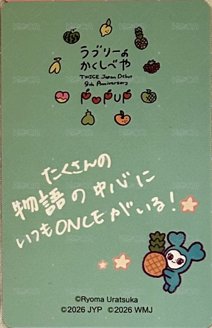 ラブリーの
かくしべや
TWICE Japan Debut
9th Anniversary
POPUP
たくさんの
物語の中心に
いつもONCEがいる!
©Ryoma Uratsuka
©2026 JYP ©2026 WMJ